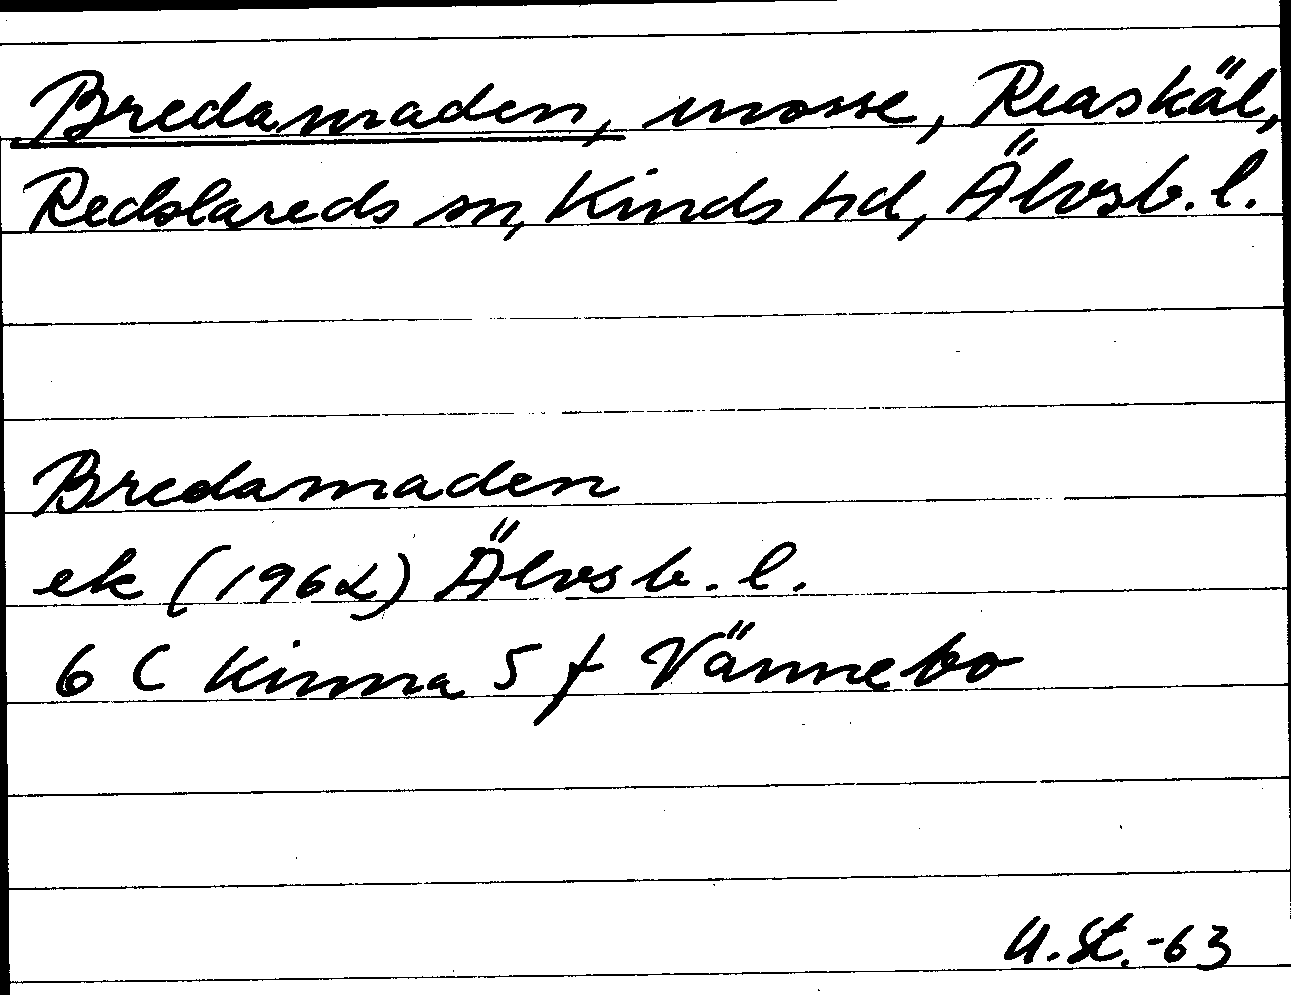 Bredamaden, mosse, Reaskäl,
Redslareds sn, Kinds hd, Älvsb. l.
Bredamaden
ek (1962) Älvsb. l.
6 C Kinna 5 f Vännebo
U.St.-63